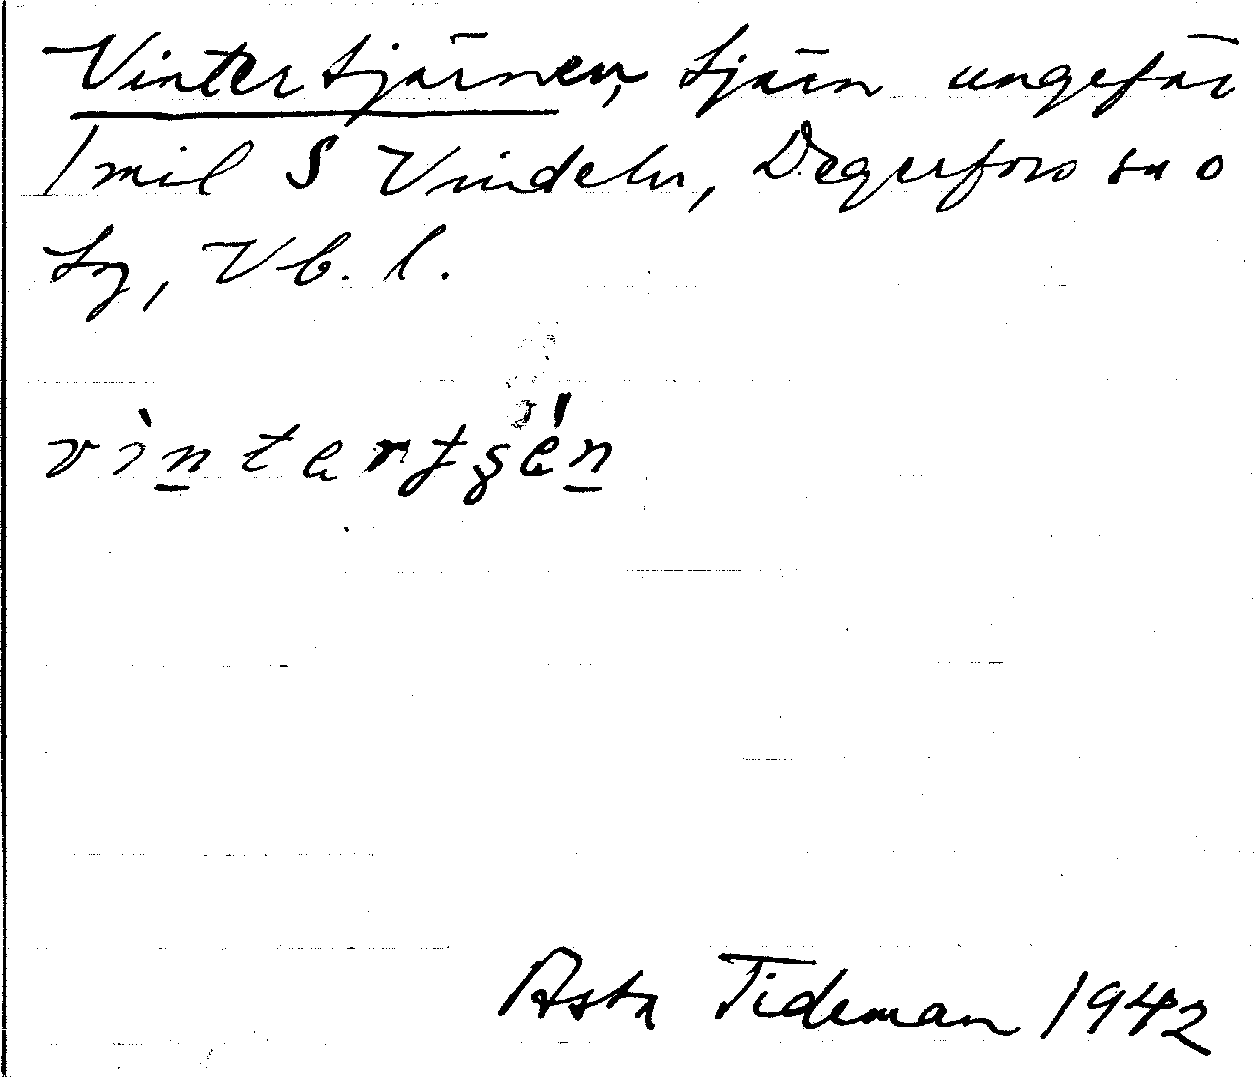 Vintertjärnen, tjärn ungefär
1 mil S Vindeln, Degerfors sn o
tg, Vb. l.
vìntertşén
Asta Tideman 1942